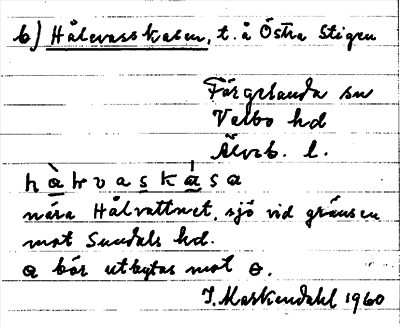 b) Hålevasskasen, t. å Östra Stigen
Färgelanda sn
Valbo hd
Älvsb. l.
nära Hålvattnet, sjö vid gränsen
mot Sundals hd.
a bör utbytas mot ɵ.
I. Markendahl 1960